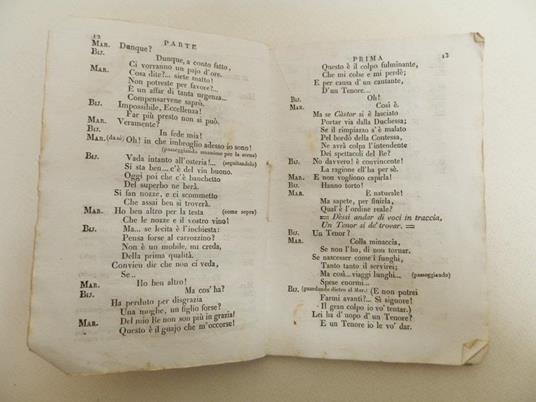 12
PARTE
Mar. Dunque?
Bij. Dunque, a conto fatto,
Ci vorranno un pajo d'ore.
Mar. Cosa dite?... siete matto!
Non potreste per favore?...
È un affar di tanta urgenza...
Compensarvene saprò.
Bij. Impossibile, Eccellenza!
Far più presto non si può.
Mar. Veramente?
Bij. In fede mia!
Mar. (da sè) Oh! in che imbroglio adesso io sono!
(passeggiando smanioso per la scena)
Bij. Vada intanto all'osteria!... (seguitandolo)
Si sta ben... c'è del vin buono.
Oggi poi che c'è banchetto
Del superbo ne berà.
Si fan nozze, e ci scommetto
Che assai ben si troverà.
Mar. Ho ben altro per la testa (come sopra)
Che le nozze e il vostro vino!
Bij. Ma... se lecita è l'inchiesta:
Pensa forse al carrozzino?
Non è un mobile, mi creda,
Della prima qualità.
Convien dir che non ci veda,
Se...
Mar. Ho ben altro!
Bij. Ma cos' ha?
Ha perduto per disgrazia
Una moglie, un figlio forse?
Mar. Del mio Re non son più in grazia!
Questo è il guajo che m'occorse!
PRIMA
13
Questo è il colpo fulminante,
Che mi colse e mi perdè;
E per causa d'un cantante,
D'un Tenore...
Bij. Oh!
Mar. Così è.
Ma se Càstor si è lasciato
Portar via dalla Duchessa;
Se il rimpiazzo s'è malato
Pel bordò della Contessa,
Ne avrà colpa l'intendente
Dei spettacoli del Re?
Bij. No davvero! è convincente!
La ragione ell'ha per sè.
Mar. E non vogliono capirla!
Bij. Hanno torto!
Mar. E naturale!
Ma sapete, per finirla,
Qual'è l'ordine reale?
= Dessi andar di voci in traccia,
Un Tenor si de' trovar. =
Bij. Un Tenor?
Mar. Colla minaccia,
Se non l'ho, di non tornar.
Se nascesser come i funghi,
Tanto tanto il servirei;
Ma così... viaggi lunghi... (passeggiando)
Spese enormi...
Bij. (guardando dietro al Mar.) (E non potrei
Farmi avanti?... Sì signore!
Il gran colpo io vo' tentar.)
Lei ha d'uopo d'un Tenore?
E un Tenore io le vo' dar.